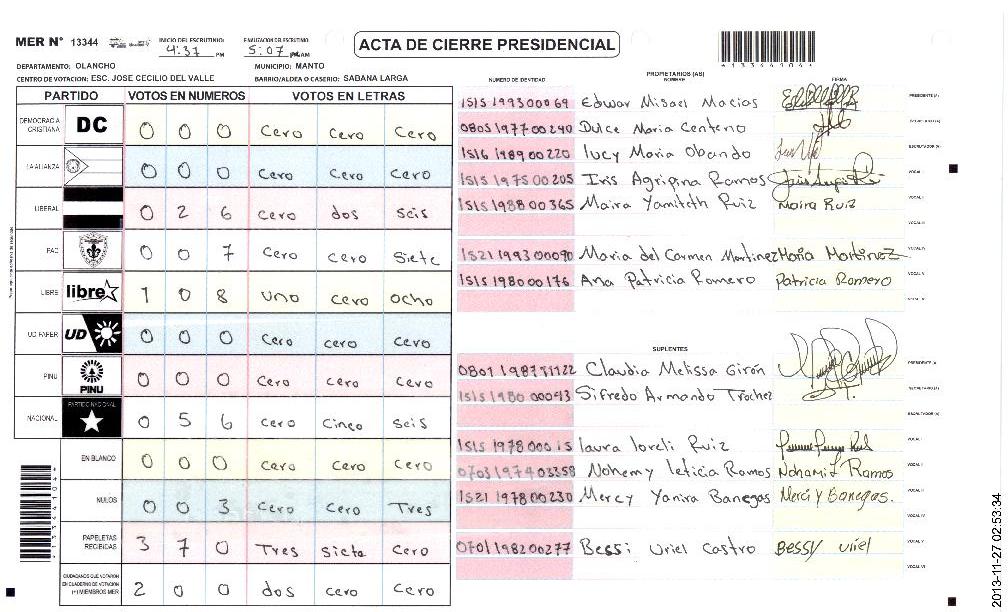 MER N° 13344 INICIO DEL ESCRUTINIO: 4:37 PM FINALIZACION DEL ESCRUTINIO: 5:07 PM AM
ACTA DE CIERRE PRESIDENCIAL
DEPARTAMENTO: OLANCHO MUNICIPIO: MANTO
CENTRO DE VOTACION: ESC. JOSE CECILIO DEL VALLE BARRIO/ALDEA O CASERIO: SABANA LARGA
PARTIDO VOTOS EN NUMEROS VOTOS EN LETRAS
DEMOCRACIA CRISTIANA DC 0 0 0 Cero Cero Cero
LA ALIANZA 0 0 0 Cero Cero Cero
LIBERAL 0 2 6 Cero dos seis
PAC 0 0 7 Cero cero Siete
LIBRE libre 1 0 8 uno cero ocho
UD FAPER UD 0 0 0 Cero cero cero
PINU PINU 0 0 0 Cero cero Cero
NACIONAL PARTIDO NACIONAL 0 5 6 cero Cinco Seis
EN BLANCO 0 0 0 Cero Cero Cero
NULOS 0 0 3 Cero Cero Tres
PAPELETAS RECIBIDAS 3 7 0 Tres siete Cero
CIUDADANOS QUE VOTARON EN CUADERNO DE VOTACION (+) MIEMBROS MER 2 0 0 dos cero Cero
NUMERO DE IDENTIDAD PROPIETARIOS (AS) NOMBRE FIRMA
1515 1993 00069 Edwar Misael Macias PRESIDENTE (A)
0805 1977 00240 Dulce Maria Centeno SECRETARIO (A)
1516 1989 00220 lucy Maria Obando ESCRUTADOR (A)
1515 1975 00205 Iris Agripina Ramos VOCAL I
1515 1988 00365 Maira Yamileth Ruiz Maira Ruiz VOCAL II
VOCAL III
1521 1993 00090 Maria del Carmen Martinez Maria Martinez VOCAL IV
1515 1980 00176 Ana Patricia Romero Patricia Romero VOCAL V
SUPLENTES
Claudia Melissa Girón PRESIDENTE (A)
1515 1980 00093 Sifredo Armando Trochez SECRETARIO (A)
ESCRUTADOR (A)
1515 1978 laura loreli Ruiz VOCAL I
0703 1974 03358 Nohemy leticia Ramos Nohami L Ramos
1521 1978 00230 Mercy Yanira Banegas Merci y Banegas.
VOCAL IV
0701 1982 00277 Bessi Uriel Castro BESSY uriel VOCAL V
VOCAL VI
2013-11-27 02:53:34